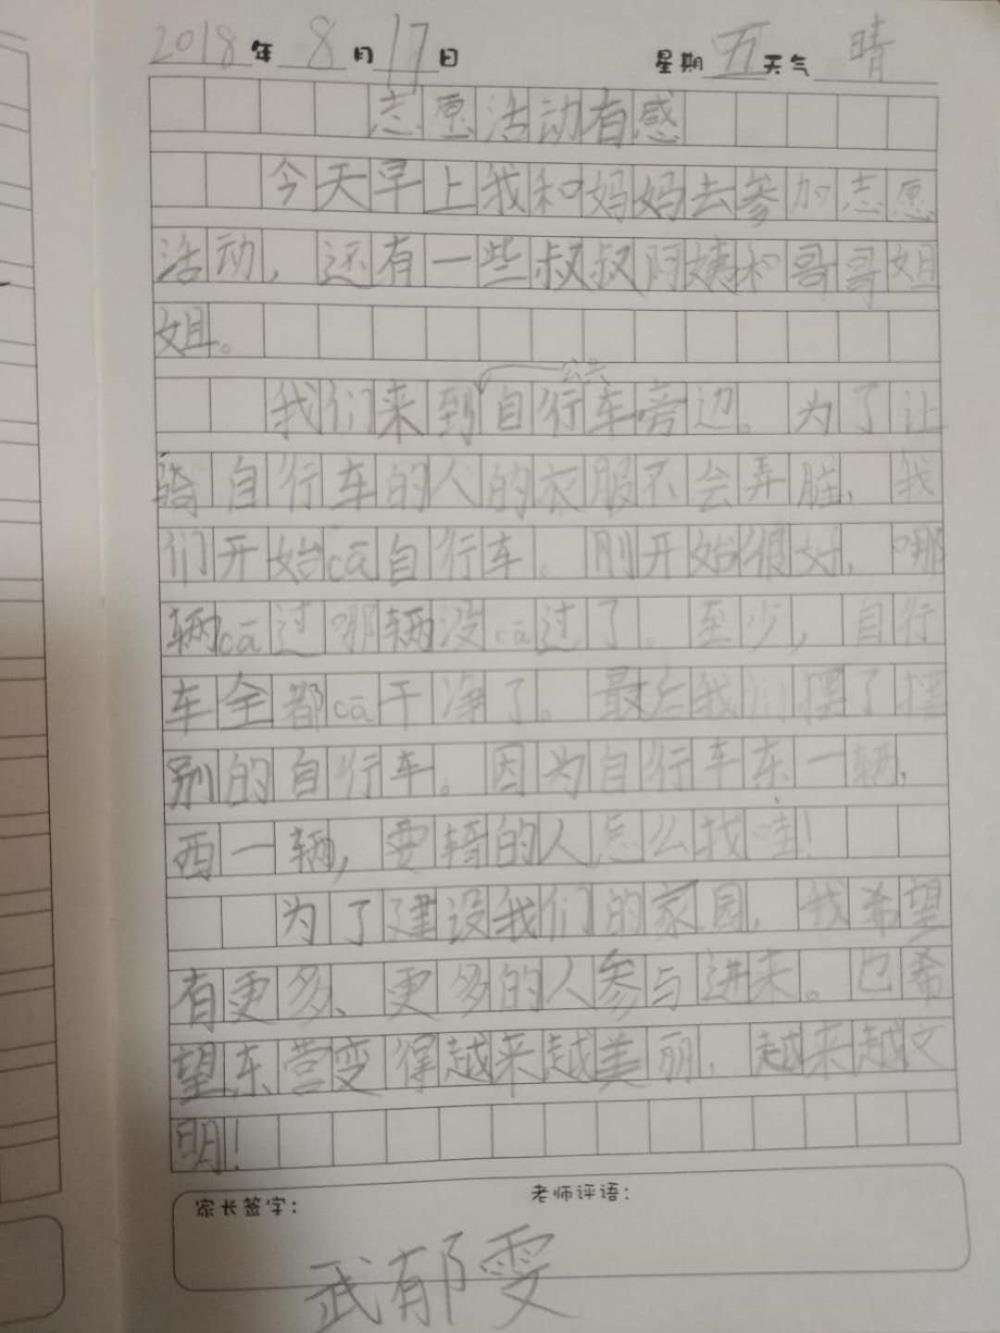 2018年8月17日 星期五天气晴
志愿活动有感
今天早上我和妈妈去参加志愿
活动，还有一些叔叔阿姨和哥哥姐
姐。
公共
我们来到自行车旁边。为了让
骑自行车的人的衣服不会弄脏，我
们开始cā自行车。刚开始很好，哪
辆cā过哪辆没cā过了。至少，自行
车全都cā干净了。最后我们摆了摆
别的自行车。因为自行车东一辆，
西一辆，要骑的人怎么找哇！
为了建设我们的家园，我希望
有更多、更多的人参与进来。也希
望东营变得越来越美丽，越来越文
明！
家长签字： 老师评语：
武郁雯